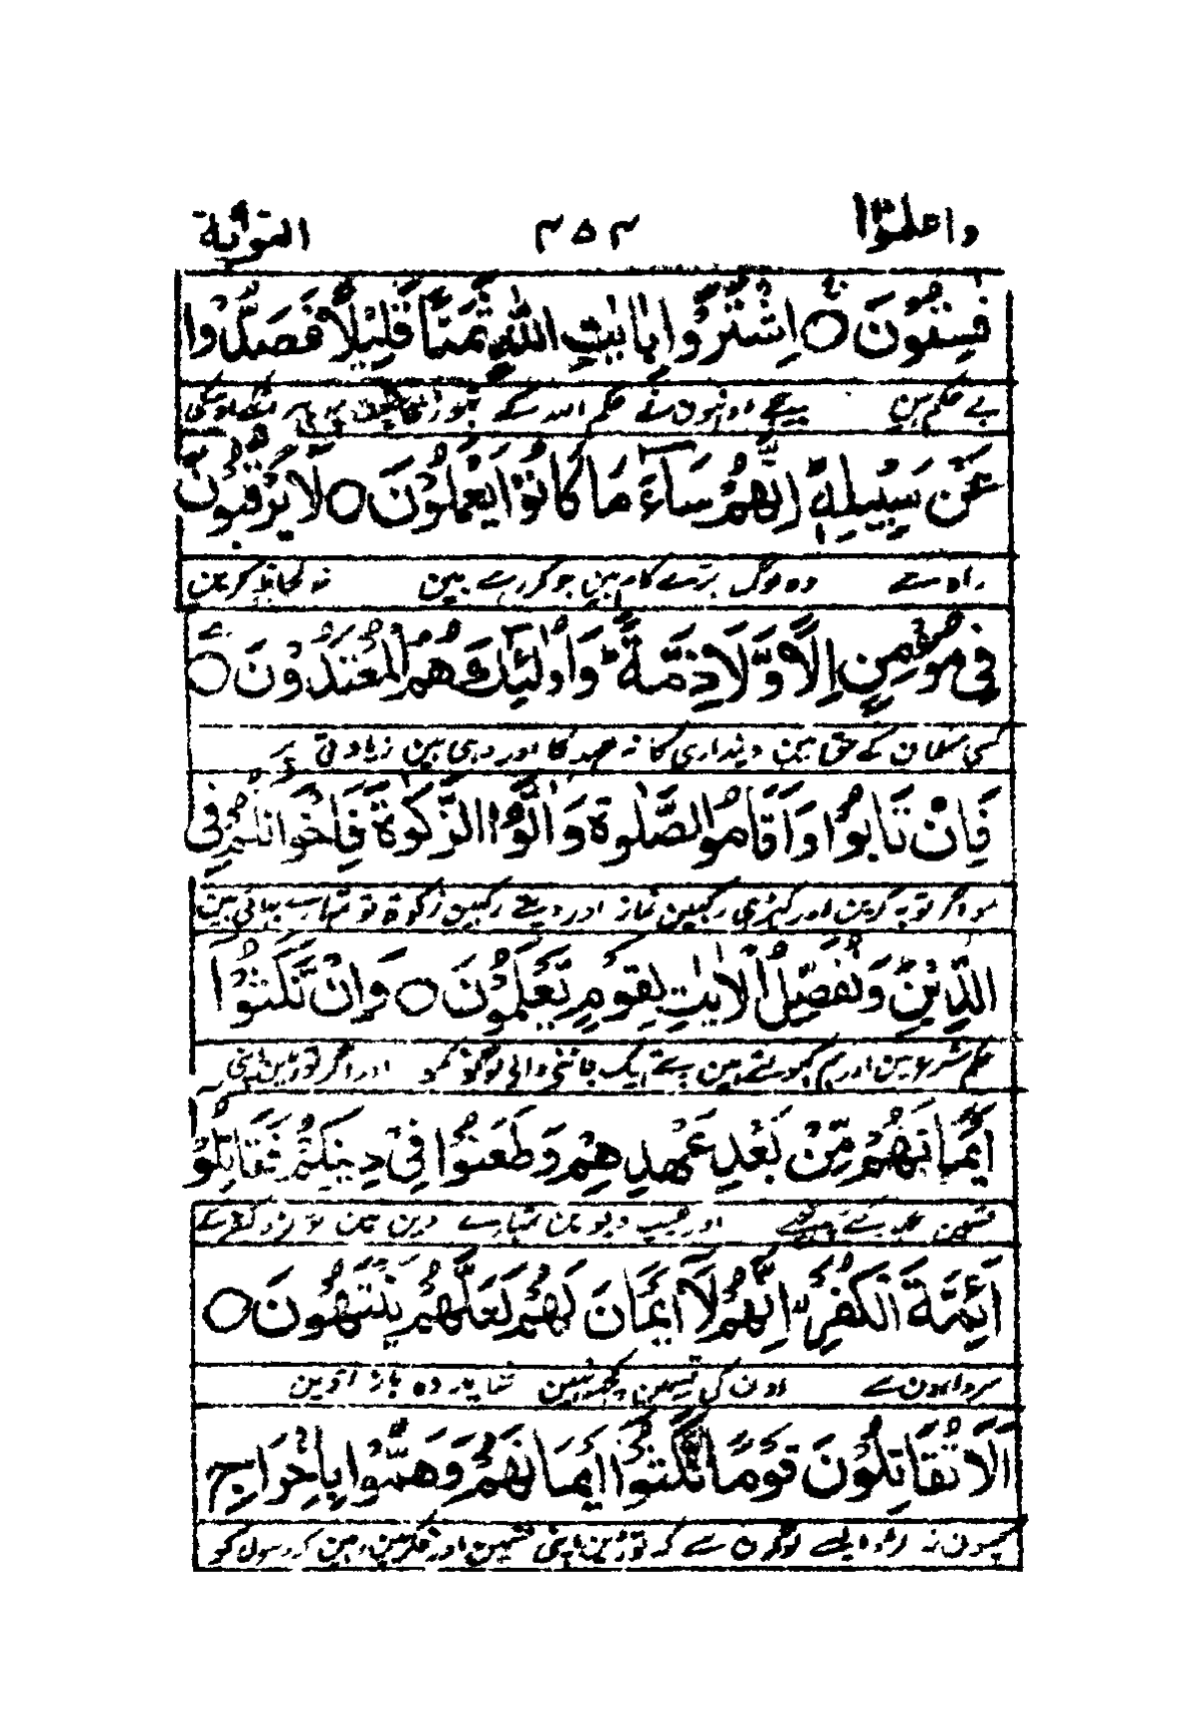 واعلموا ۱۰ ۳۵۳ التوبة ۹
فٰسِقُوْنَ ○ اِشْتَرَوْا بِاٰيٰتِ اللّٰهِ ثَمَنًا قَلِيْلًا فَصَدُّوْا
بے حکم ہین بیچے اونہون نے حکم اللہ کے تہوڑی
عَنْ سَبِيْلِهٖ ؕ اِنَّهُمْ سَآءَ مَا كَانُوْا يَعْمَلُوْنَ ○ لَا يَرْقُبُوْنَ
راہ سے وہ لوگ برے کام ہین جو کر رہے ہین نہ لحاظ کرین
فِيْ مُؤْمِنٍ اِلًّا وَّلَا ذِمَّةً ؕ وَاُولٰٓئِكَ هُمُ الْمُعْتَدُوْنَ ○
کسی مسلمان کے حق مین دینداری کا نہ عہد کا اور وہی ہین زیادتی پر
فَاِنْ تَابُوْا وَاَقَامُوا الصَّلٰوةَ وَاٰتَوُا الزَّكٰوةَ فَاِخْوَانُكُمْ فِي
سو اگر توبہ کرین اور کہڑی رکہین نماز اور دیتے رہین زکوٰة تو تمہارے بہائی ہین
الدِّيْنِ ؕ وَنُفَصِّلُ الْاٰيٰتِ لِقَوْمٍ يَّعْلَمُوْنَ ○ وَاِنْ نَّكَثُوْٓا
حکم شرع مین اور ہم کہولتے ہین پتے ایک جاننے والی لوگونکو اور اگر توڑین اپنی
اَيْمَانَهُمْ مِّنْ بَعْدِ عَهْدِهِمْ وَطَعَنُوْا فِيْ دِيْنِكُمْ فَقَاتِلُوْٓا
قسمین عہد کئے پیچھے اور عیب دیوین تمہارے دین مین تو لڑو کفر کے
اَئِمَّةَ الْكُفْرِ ۙ اِنَّهُمْ لَآ اَيْمَانَ لَهُمْ لَعَلَّهُمْ يَنْتَهُوْنَ ○
سردارون سے اون کی قسمین کچھ نہین شاید وہ باز آوین
اَلَا تُقَاتِلُوْنَ قَوْمًا نَّكَثُوْٓا اَيْمَانَهُمْ وَهَمُّوْا بِاِخْرَاجِ
کیون نہ لڑو ایسے لوگون سے کہ توڑین اپنی قسمین اور فکر مین رہین کہ رسول کو